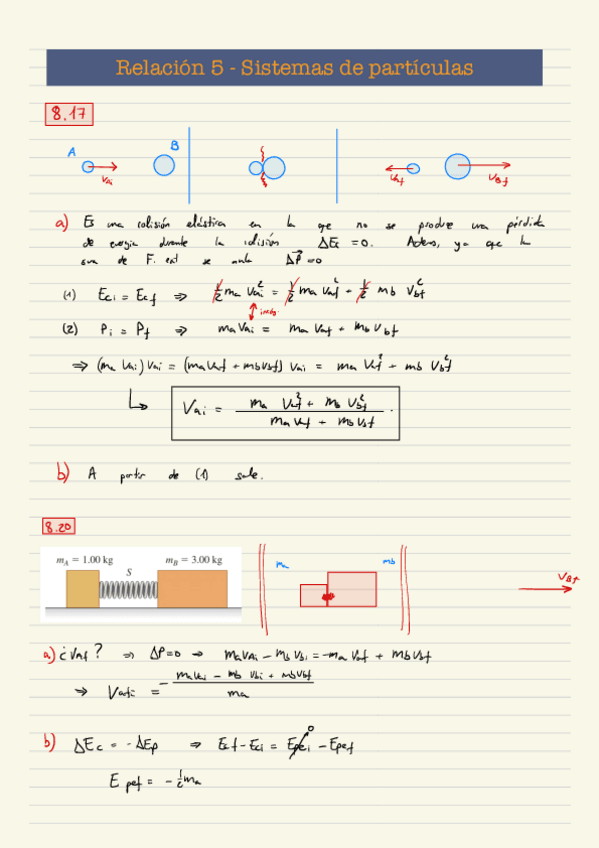 Relación 5 - Sistemas de partículas
8.17
A
B
Vai
Vaf
VBf
a) Es una colisión elástica en la que no se produce una pérdida
de energía durante la colisión ΔEc = 0. Además, ya que la
suma de F. ext es nula ΔP⃗ = 0
(1) Eci = Ecf ⇒ ½ ma Vai² = ½ ma Vaf² + ½ mb Vbf²
(2) Pi = Pf ⇒ ma Vai = ma Vaf + mb Vbf
⇒ (ma Vai) Vai = (ma Vaf + mb Vbf) Vai = ma Vaf² + mb Vbf²
Vai = (ma Vaf² + mb Vbf²) / (ma Vaf + mb Vbf)
b) A partir de (1) sale.
8.20
mA = 1.00 kg
S
mB = 3.00 kg
ma
mb
VBf
a) ¿Vaf? ⇒ ΔP=0 → ma Vai - mb Vbi = -ma Vaf + mb Vbf
b) ΔEc = -ΔEp ⇒ Ecf - Eci = Epei - Epef
0
E pef = - ½ ma